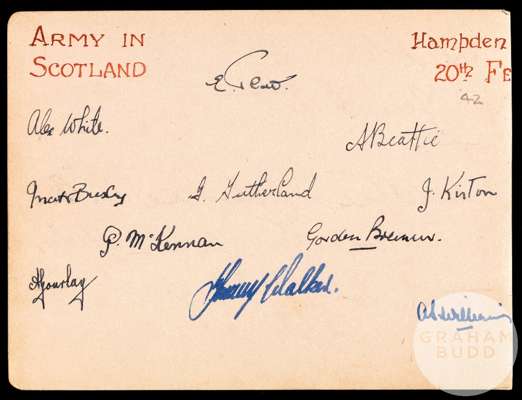 ARMY IN
SCOTLAND
Hampden
20th FE
42
Alex White.
A Beattie
G. Sutherland
J. Kirton
P. McKennan
Gordon Bremner.
A Gourlay
Tommy Walker.
GRAHAM
BUDD